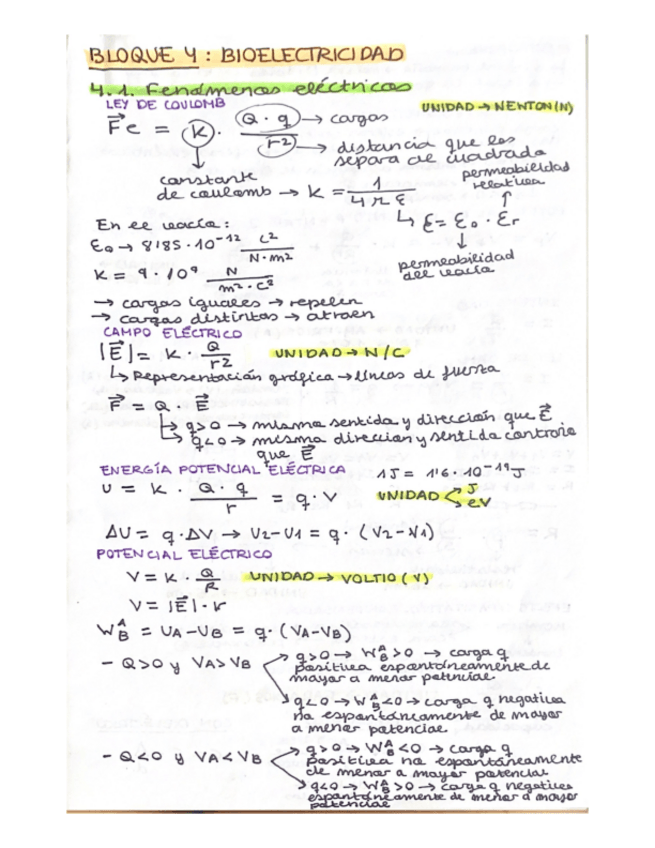 BLOQUE 4: BIOELECTRICIDAD
4.1. Fenómenos eléctricos
LEY DE COULOMB
UNIDAD → NEWTON (N)
F⃗e = k · Q · q / r2 → cargas
→ distancia que los
separa al cuadrado
constante
de coulomb → K = 1 / 4 π ε
permeabilidad
relativa
↳ ε = ε0 · εr
permeabilidad
del vacío
En el vacío:
ε0 → 8'85 · 10⁻¹² C² / N · m²
K = 9 · 10⁹ N / m² · C²
→ cargas iguales → repelen
→ cargas distintas → atraen
CAMPO ELÉCTRICO
|E⃗| = K · Q / r2 UNIDAD → N/C
↳ Representación gráfica → líneas de fuerza
F⃗ = Q · E⃗
↳ q>0 → mismo sentido y dirección que E⃗
↳ q<0 → misma direccion y sentido contrario
que E⃗
ENERGÍA POTENCIAL ELÉCTRICA 1J = 1'6 · 10⁻¹⁹ J
U = K · Q · q / r = q · V UNIDAD < J
eV
ΔU = q · ΔV → U2-U1 = q · (V2-V1)
POTENCIAL ELÉCTRICO
V = K · Q / R UNIDAD → VOLTIO (V)
V = |E⃗| · r
W^A_B = UA-UB = q · (VA-VB)
- Q>0 y VA>VB
q>0 → W^A_B>0 → carga q
positiva espontáneamente de
mayor a menor potencial
q<0 → W^A_B<0 → carga q negativa
no espontáneamente de mayor
a menor potencial
- Q<0 y VA<VB
q>0 → W^A_B<0 → carga q
positiva no espontáneamente
de menor a mayor potencial
q<0 → W^A_B>0 → carga q negativa
espontáneamente de menor a mayor
potencial